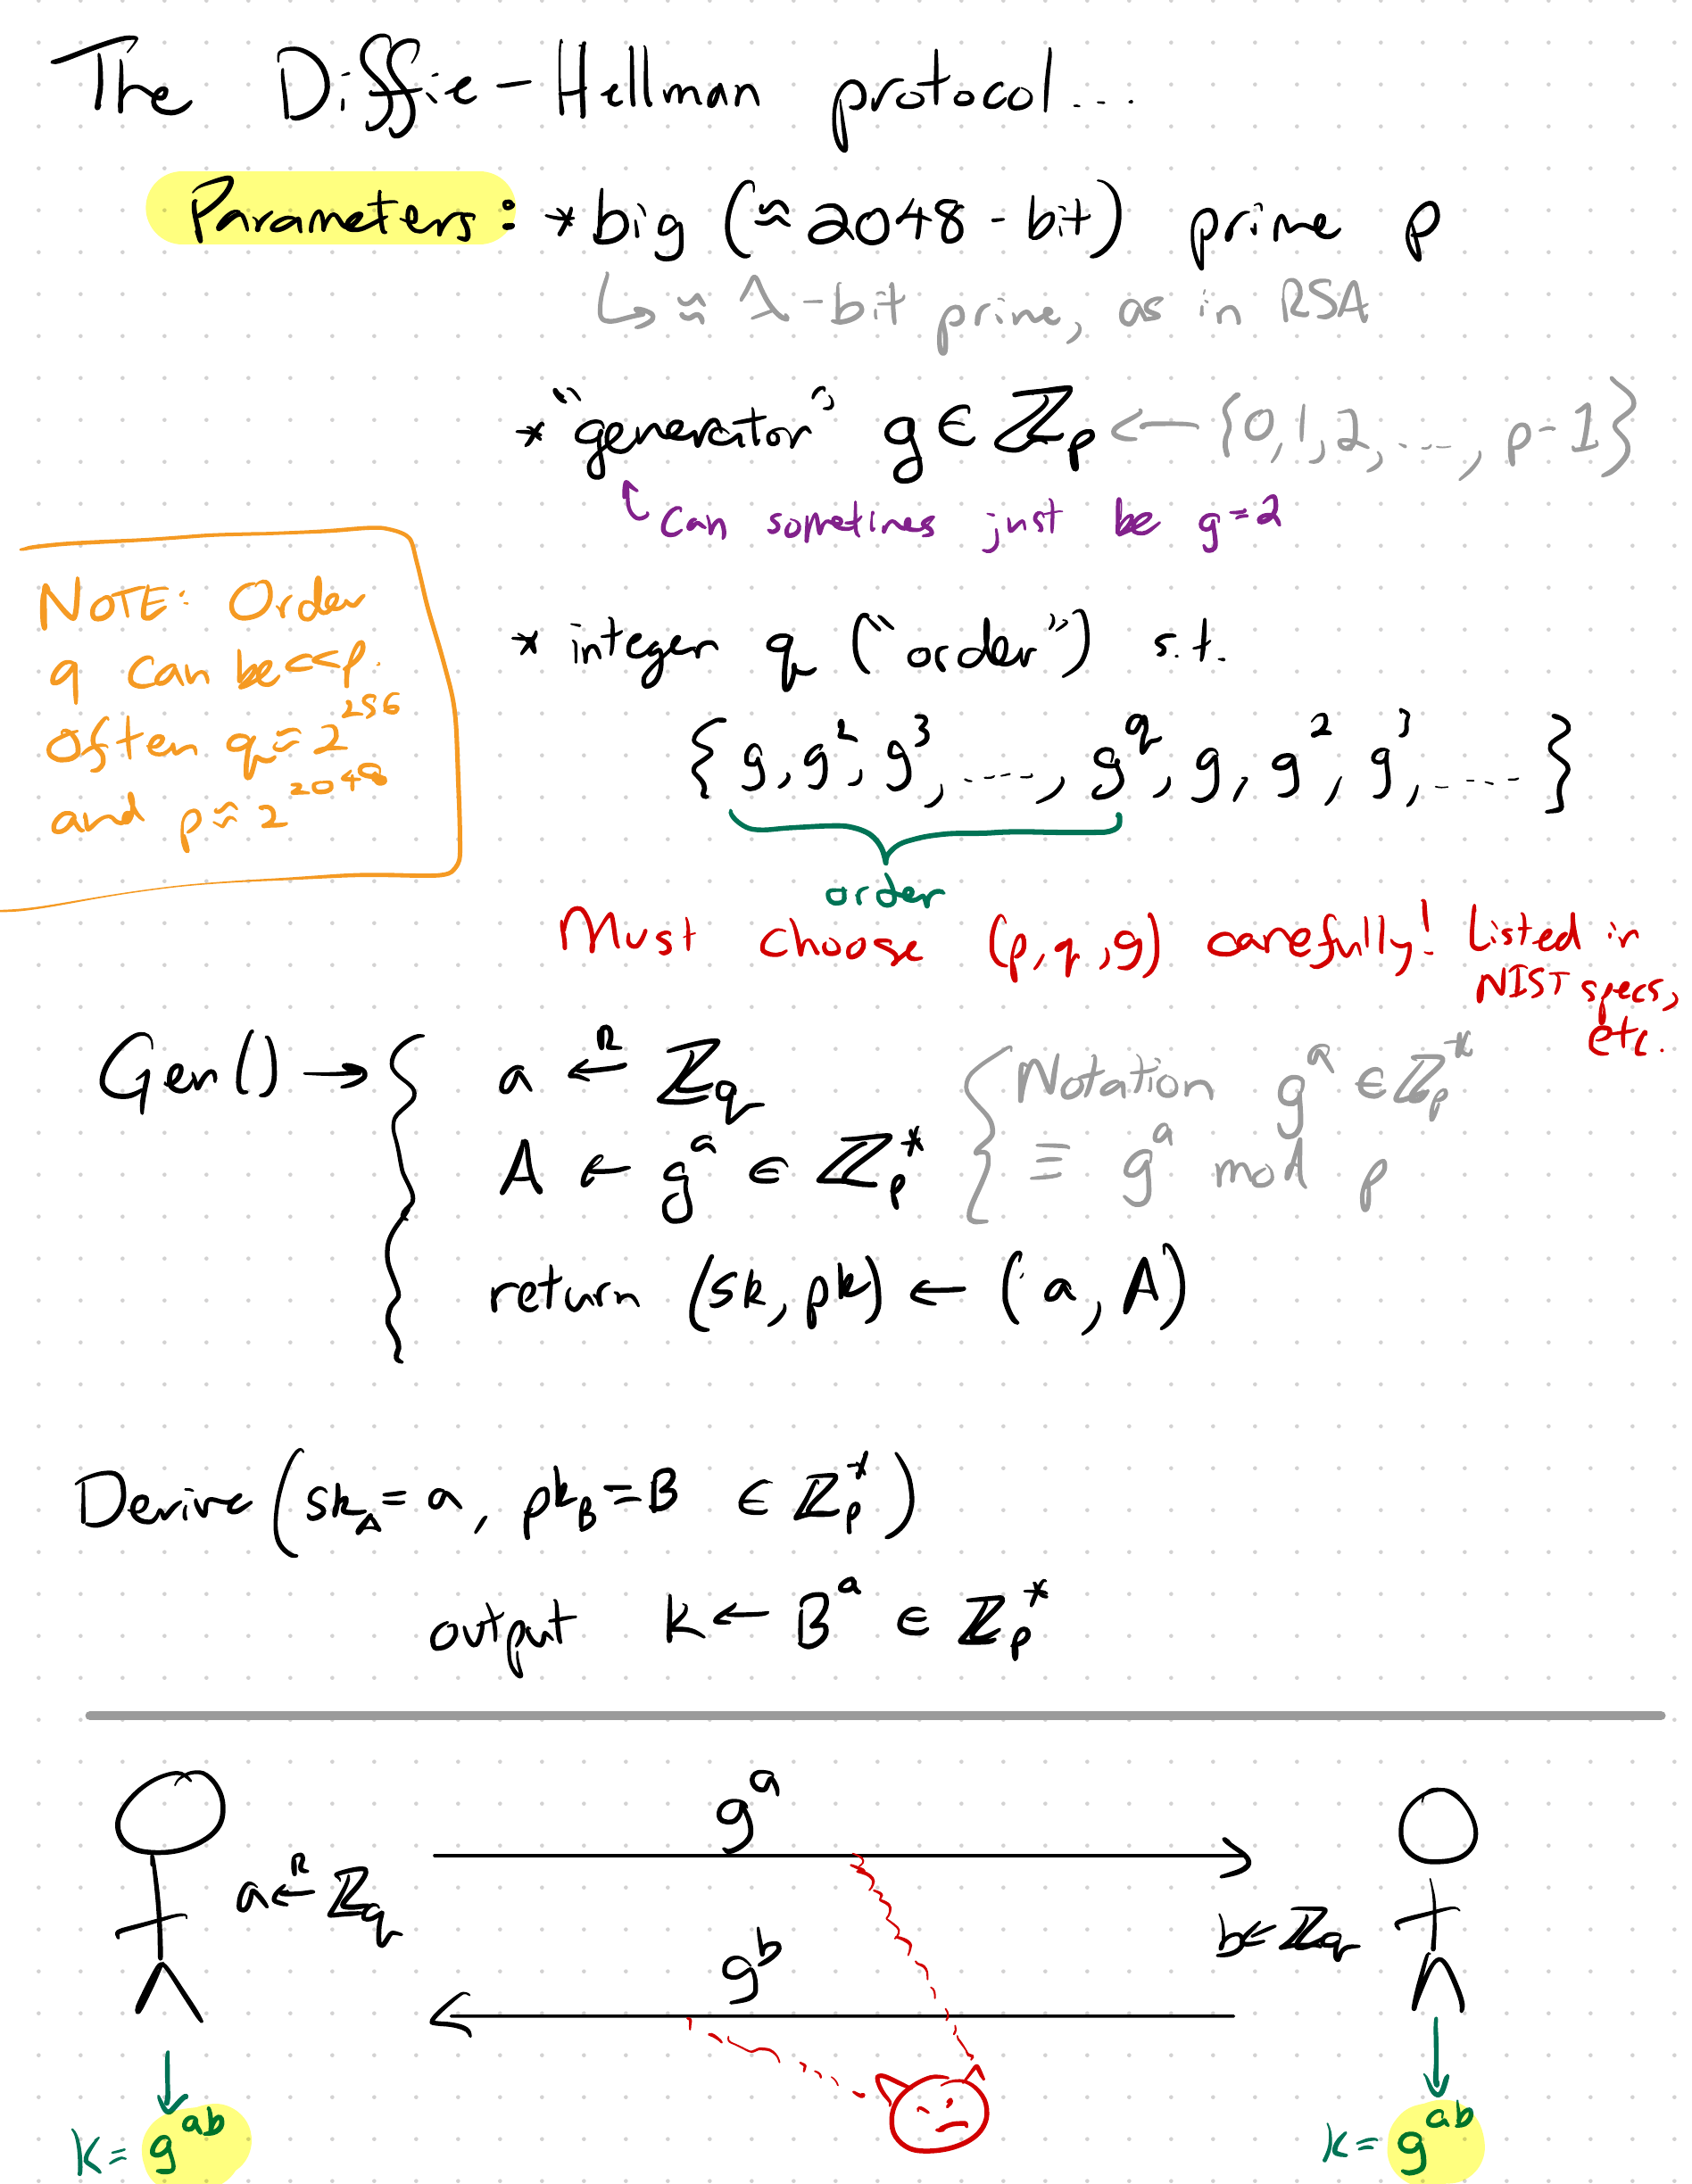 The Diffie-Hellman protocol...
Parameters: * big (≈ 2048-bit) prime p
↳ ≈ λ-bit prime, as in RSA
* "generator" g ∈ ℤ_p ← {0,1,2, ..., p-1}
can sometimes just be g=2
NOTE: Order
q can be << p.
Often q ≈ 2^256
and p ≈ 2^2048
* integer q ("order") s.t.
{g, g^2, g^3, ...., g^q, g, g^2, g^3, ....}
order
Must choose (p,q,g) carefully! Listed in
NIST specs,
etc.
Gen() → { a ←^R ℤ_q
A ← g^a ∈ ℤ_p^*
return (sk, pk) ← (a, A)
{ Notation g^a ∈ ℤ_p^*
≡ g^a mod p
Derive (sk_A = a, pk_B = B ∈ ℤ_p^*)
output k ← B^a ∈ ℤ_p^*
g^a
a ←^R ℤ_q
b ← ℤ_q
g^b
k = g^ab
k = g^ab